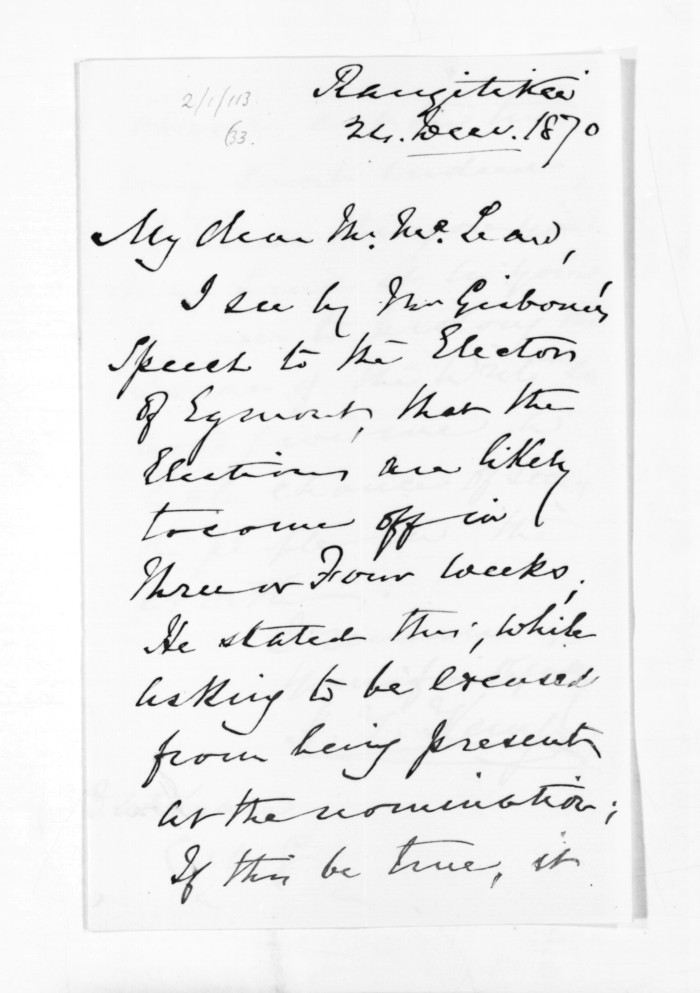 Rangitikei
24. Decr. 1870
2/1/113
33.
My dear Mr. McLean,
I see by Mr Gisborne's
Speech to the Electors
of Egmont, that the
Elections are likely
to come off in
three or Four weeks,
He stated this, while
asking to be excused
from being present
at the nomination;
If this be true, it